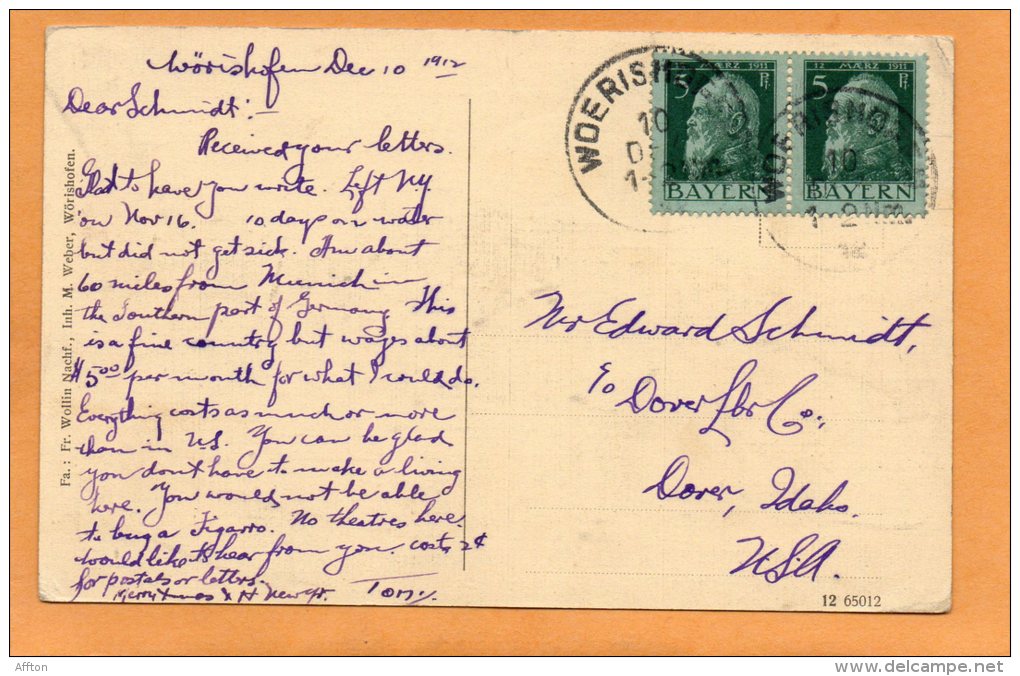 Wörishofen Dec 10 1912
Dear Schmidt:-
Received your letters.
Glad to have you write. Left NY
on Nov 16. 10 days on water
but did not get sick. Am about
60 miles from Munich in
the Southern part of Germany This
is a fine country but wages about
$5.00 per month for what I could do.
Everything costs as much or more
than in U.S. You can be glad
you don't have to make a living
here. You would not be able
to buy a Figarro. No theatres here.
Would like to hear from you. costs 2¢
for postals or letters.
Merry Xmas & H New Yr. Tony.
Fa.: Fr. Wollin Nachf., Inh. M. Weber, Wörishofen.
WOERISHO
10
12 MÄRZ 1911
5 Pf
BAYERN
12 MÄRZ 1911
5 Pf
BAYERN
WOERISHO
10
1-2 Nm
Mr Edward Schmidt,
c/o Dover Lbr Co.,
Dover, Idaho.
U.S.A.
12 65012
Affton
www.delcampe.net